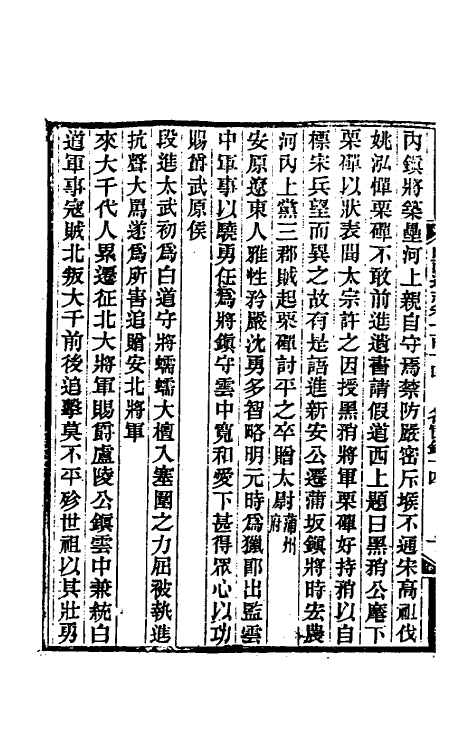 內鎭將築壘河上親自守焉禁防嚴密斥堠不通宋高祖伐
姚泓憚栗磾不敢前進遺書請假道西上題曰黑矟公麾下
栗磾以狀表聞太宗許之因授黑矟將軍栗磾好持矟以自
標宋兵望而異之故有是語進新安公遷蒲坂鎭將時宏農
河內上黨三郡賊起栗磾討平之卒贈太尉蒲州府
安原遼東人雅性矜嚴沈勇多智略明元時爲獵郞出監雲
中軍事以驍勇任爲將鎭守雲中寬和愛下甚得眾心以功
賜爵武原侯
段進太武初爲白道守將蠕蠕大檀入塞圍之力屈被執進
抗聲大罵遂爲所害追贈安北將軍
來大千代人累遷征北大將軍賜爵盧陵公鎭雲中兼統白
道軍事寇賊北叛大千前後追擊莫不平殄世祖以其壯勇